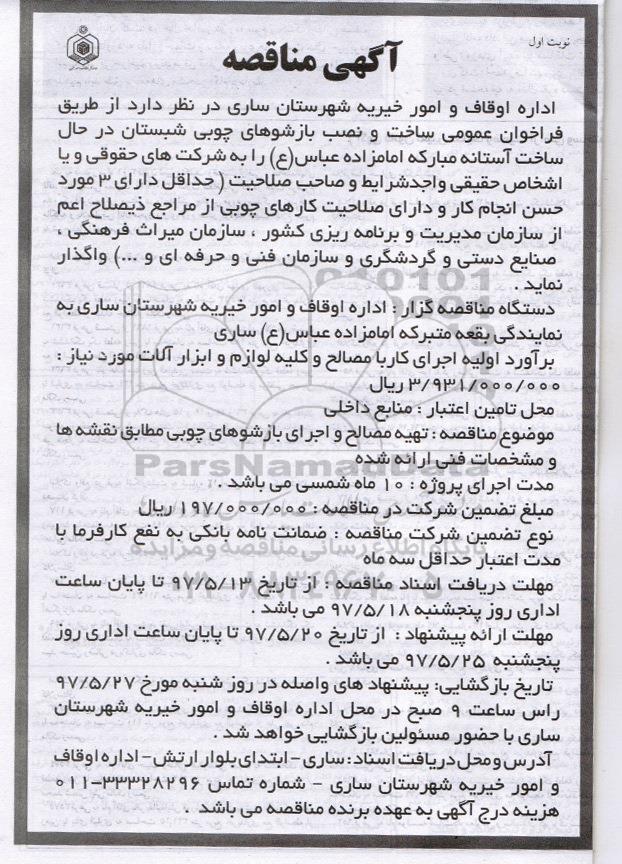 نوبت اول
آگهی مناقصه
اداره اوقاف و امور خیریه شهرستان ساری در نظر دارد از طریق
فراخوان عمومی ساخت و نصب بازشوهای چوبی شبستان در حال
ساخت آستانه مبارکه امامزاده عباس(ع) را به شرکت های حقوقی و یا
اشخاص حقیقی واجدشرایط و صاحب صلاحیت (حداقل دارای ۳ مورد
حسن انجام کار و دارای صلاحیت کارهای چوبی از مراجع ذیصلاح اعم
از سازمان مدیریت و برنامه ریزی کشور ، سازمان میراث فرهنگی ،
صنایع دستی و گردشگری و سازمان فنی و حرفه ای و ...) واگذار
نماید .
دستگاه مناقصه گزار : اداره اوقاف و امور خیریه شهرستان ساری به
نمایندگی بقعه متبرکه امامزاده عباس(ع) ساری
برآورد اولیه اجرای کاربا مصالح و کلیه لوازم و ابزار آلات مورد نیاز :
۳/۹۳۱/۰۰۰/۰۰۰ ریال
محل تامین اعتبار : منابع داخلی
موضوع مناقصه : تهیه مصالح و اجرای بازشوهای چوبی مطابق نقشه ها
و مشخصات فنی ارائه شده
ParsNamadData
مدت اجرای پروژه : ۱۰ ماه شمسی می باشد .
مبلغ تضمین شرکت در مناقصه : ۱۹۷/۰۰۰/۰۰۰ ریال
نوع تضمین شرکت مناقصه : ضمانت نامه بانکی به نفع کارفرما با
پایگاه اطلاع رسانی مناقصه و مزایده
مدت اعتبار حداقل سه ماه
مهلت دریافت اسناد مناقصه : از تاریخ ۹۷/۵/۱۳ تا پایان ساعت
اداری روز پنجشنبه ۹۷/۵/۱۸ می باشد .
مهلت ارائه پیشنهاد : از تاریخ ۹۷/۵/۲۰ تا پایان ساعت اداری روز
پنجشنبه ۹۷/۵/۲۵ می باشد .
تاریخ بازگشایی: پیشنهاد های واصله در روز شنبه مورخ ۹۷/۵/۲۷
راس ساعت ۹ صبح در محل اداره اوقاف و امور خیریه شهرستان
ساری با حضور مسئولین بازگشایی خواهد شد .
آدرس و محل دریافت اسناد : ساری - ابتدای بلوار ارتش - اداره اوقاف
و امور خیریه شهرستان ساری - شماره تماس ۳۳۳۲۸۲۹۶-۰۱۱
هزینه درج آگهی به عهده برنده مناقصه می باشد .